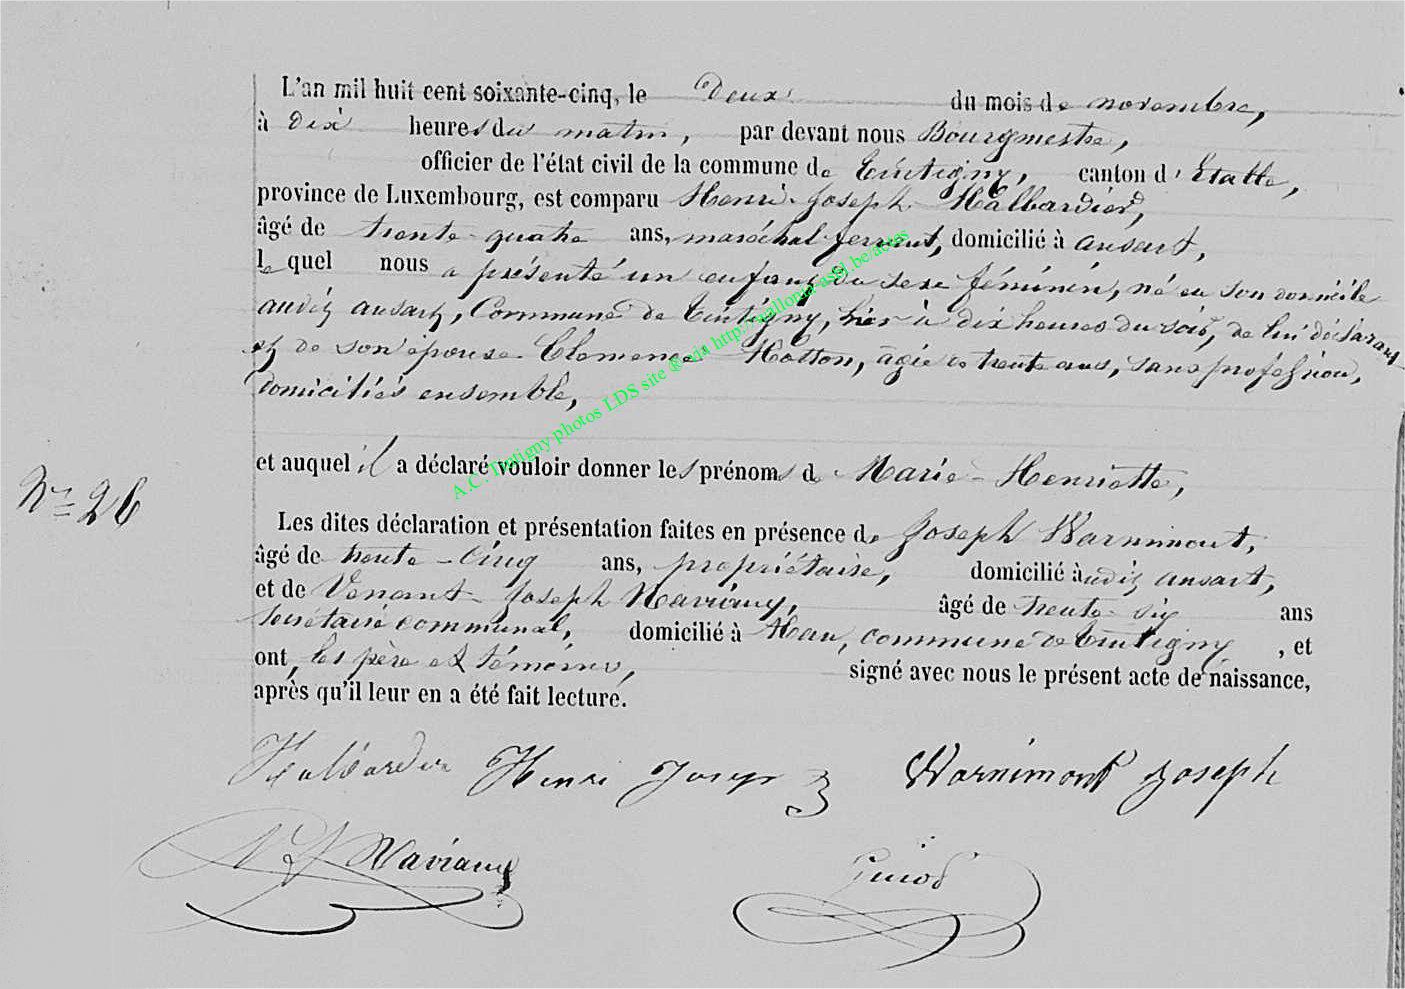 L'an mil huit cent soixante-cinq, le Deux du mois de novembre,
à dix heures du matin, par devant nous Bourgmestre,
officier de l'état civil de la commune de Tintigny, canton d'Etalle,
province de Luxembourg, est comparu Henri-Joseph Halbardier,
âgé de trente-quatre ans, maréchal-ferrant, domicilié à ansart,
le quel nous a présenté un enfant du sexe féminin, né en son domicile
audit ansart, Commune de Tintigny, hier à dix heures du soir, de lui déclarant
et de son épouse Clemence Hotton, âgée de trente ans, sans profession,
domiciliés ensemble,
et auquel il a déclaré vouloir donner les prénoms de Marie-Henriette,
N° 26
Les dites déclaration et présentation faites en présence de Joseph Warnimont,
âgé de trente-cinq ans, propriétaire, domicilié audit ansart,
et de Venant-Joseph Maviaux, âgé de trente-six ans
secrétaire communal, domicilié à Han, commune de Tintigny, et
ont, les père et témoins, signé avec nous le présent acte de naissance,
après qu'il leur en a été fait lecture.
Halbardier Henri Joseph Warnimont Joseph
A.C. Tintigny photos LDS site ® via http://wallonia-asbl.be/actes